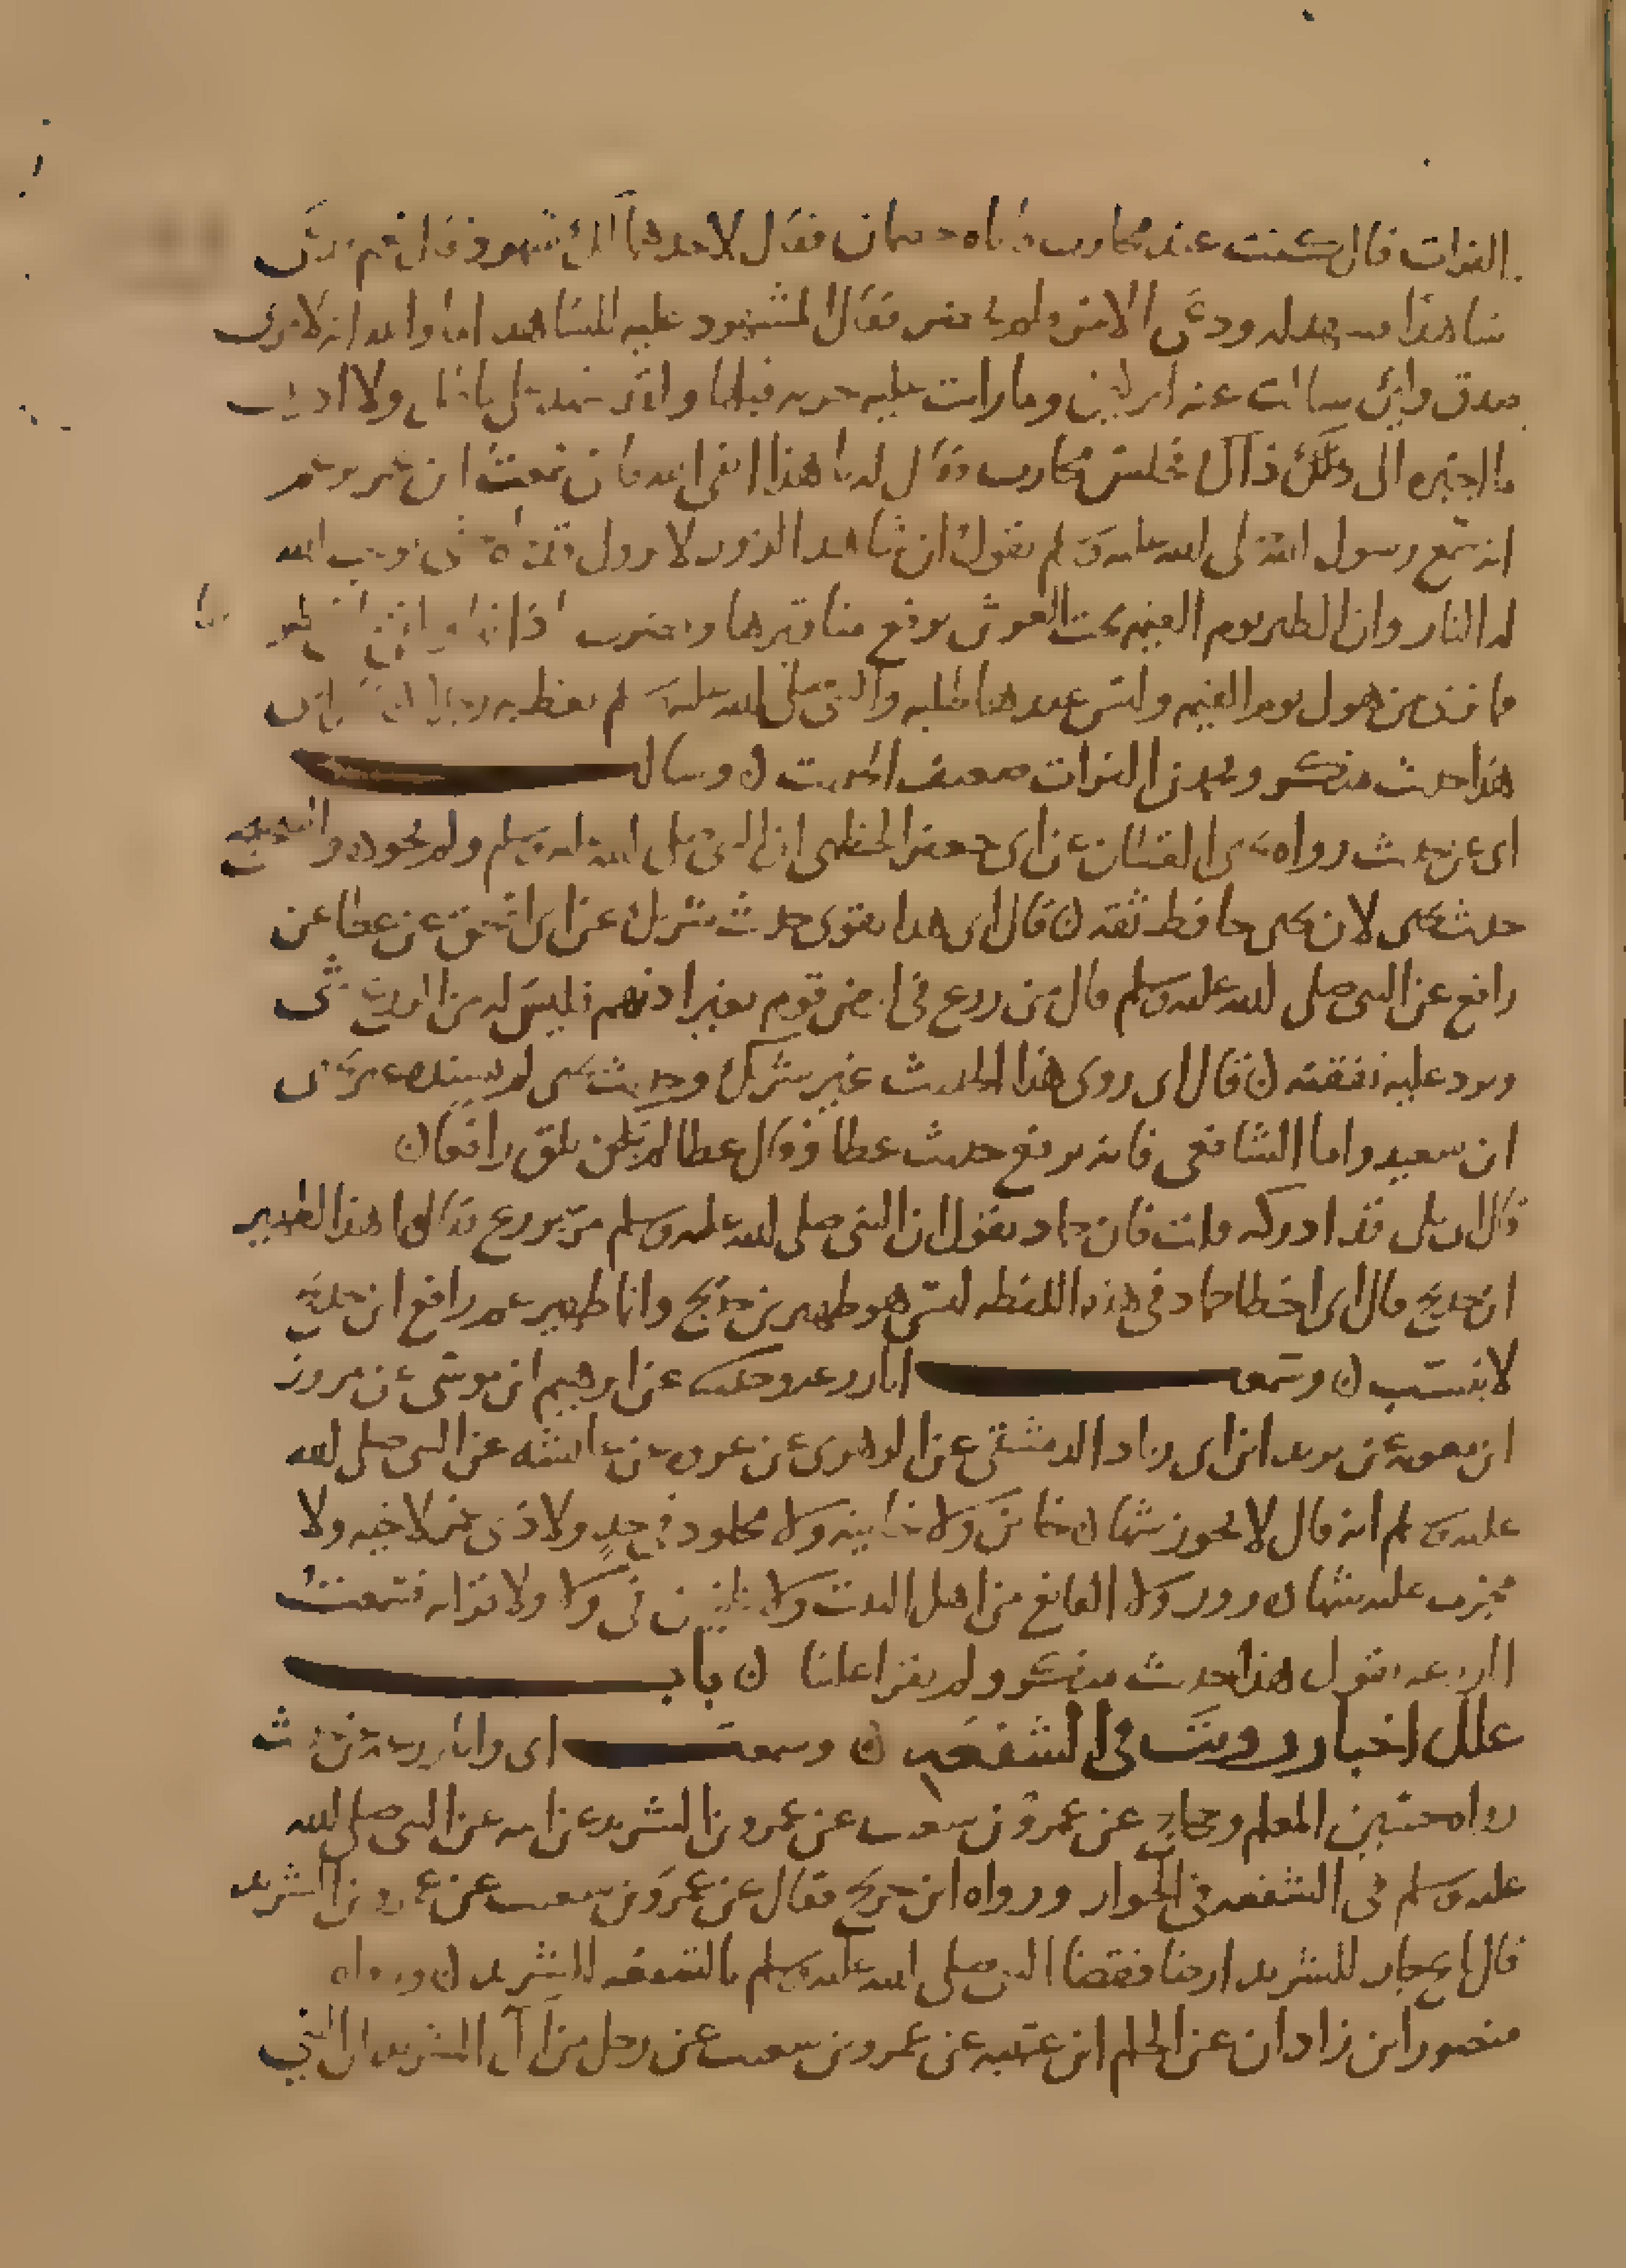 الفرات قال كنت عند محارب فقال لاحدهما الك شهود قال نعم
شاهدا فشهد له ودعى الاخر ولم فقال المشهود عليه للشاهد اما والله انه لا
صدق ولين سالت عنه وما رابت عليه حربه قبلها ولا ادرى
ما اجبره الى ذلك محارب له يا هذا اتق الله فاني سمعت ابن عمر
انه سمع رسول الله صلى الله عليه وسلم يقول ان شاهد الزور لا يزول الله
له النار وان الطير يوم القيمه تحت العرش يرفع مناقيرها
من هول يوم القيمه وليس عندها طلبه والنبي صلى الله عليه وسلم يعظ به رجلا
هذا حديث منكر ومحمد بن الفرات ضعيف الحديث ن وسالت
ابى عن حديث رواه يحيى القطان عن ابى جعفر الخطمى ان النبى صلى الله عليه وسلم
حديث يحيى لان يحيى حافظ ثقه ن قال ابى هذا يقوى حديث شريك عن ابى اسحق عن عطا عن
رافع عن النبى صلى الله عليه وسلم قال من زرع فى ارض قوم بغير اذنهم فليس له من الزرع شى
ويرد عليه نفقته ن قال ابى روى هذا الحديث غير شريك وحديث يحيى لم يسنده غير يحيى
ابن سعيد واما الشافعى فانه يرفع حديث عطا وقال عطا لم يلق رافعا ن
قال ابى بلى قد ادركه قلت فان حماد يقول ان النبى صلى الله عليه وسلم مر بزرع فقالوا هذا لظهير
ابن خديج قال ابى اخطا حماد فى هذه اللفظه ليس هو ظهير بن خديج وانما ظهير عم رافع ابن خديج
لا ينسب ن وسمعت ابا زرعه عن ابرهيم ابن موسى عن مروان
ابن معويه عن يزيد ابن ابى زياد الدمشقى عن الزهرى عن عروه عن عائشه عن النبى صلى الله
عليه وسلم انه قال لا يجوز شهاده خائن ولا خاينه ولا مجلود فى حد ولا ذى غمر لاخيه ولا
مجرب عليه شهاده زور ولا القانع من اهل البيت ولا ظنين فى ولا ولا قرابه فسمعت
ابا زرعه يقول هذا حديث منكر ولم يقرا علينا ن باب
علل اخبار رويت فى الشفعه ن وسمعت ابى وابا زرعه حديث
رواه حسين المعلم عن عمرو بن شعيب عن عمرو بن الشريد عن ابيه عن النبى صلى الله
عليه وسلم فى الشفعه فى الجوار ورواه ابن جريج فقال عن عمرو بن شعيب عن عمرو بن الشريد
قال للشريد ارضا فقضا النبى صلى الله عليه وسلم بالشفعه للشريد ن ورواه
منصور ابن زاذان عن الحكم ابن عتيبه عن عمرو بن شعيب عن رجل من آل الشريد ان النبى